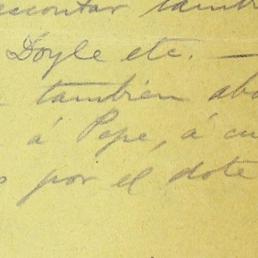 escontar tambi
Doyle etc. —
tambien abo
á Pepe, á cu
s por el dote